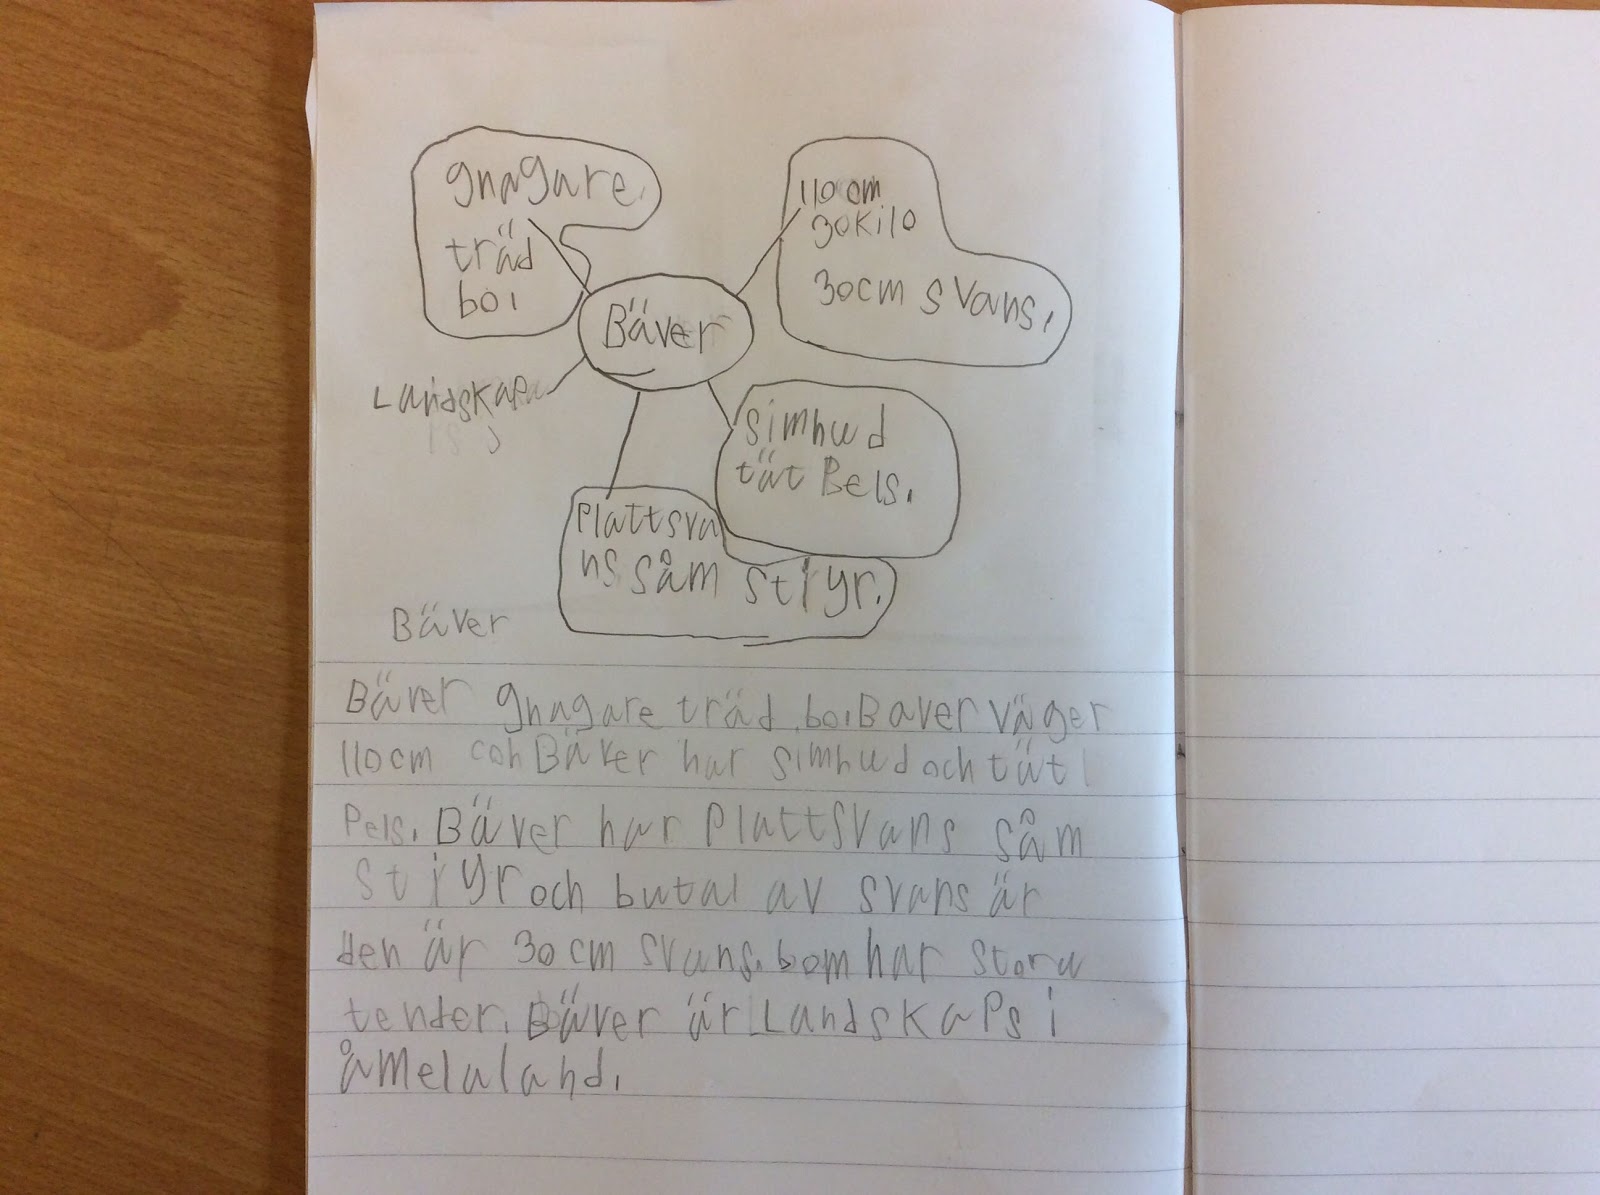 gnagare.
träd
boi
110cm
30kilo
30cm svans.
Bäver
Landskap
simhud
tät Bels.
Plattsva
ns såm styr.
Bäver
Bäver gnagare träd boi Baver väger
110cm och Bäver har simhud och tät
Pels. Bäver har Plattsvans såm
styr och butal av svans är
den är 30cm svans. bom har stora
tender. Bäver är Landskaps i
åmelaland.